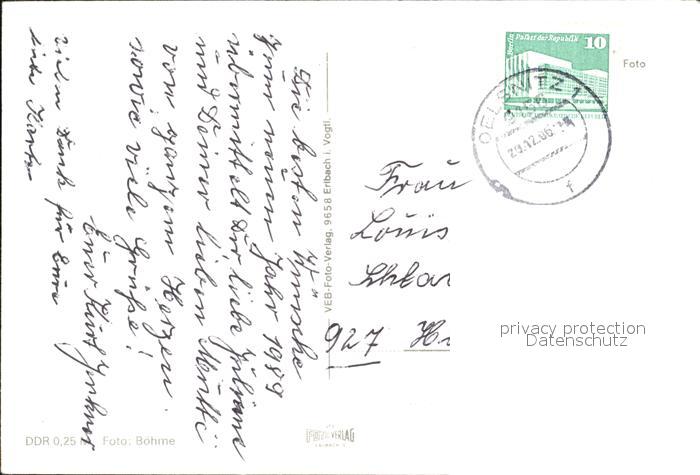 Die besten Wünsche
zum neuen Jahr 1989
übermittelt Dir, liebe Juliane
und Deiner lieben Mutti
von ganzem Herzen
sowie viele Grüße!
Euer Kurt
vielen Dank für Eure
liebe Karte
VEB-Foto-Verlag, 9658 Erlbach i. Vogtl.
DDR 0,25
Foto: Böhme
FOTO-VERLAG
ERLBACH
Berlin Palast der Republik
10
Foto
OELSNITZ 1
29.12.88
f
Frau
Louis
927
privacy protection
Datenschutz